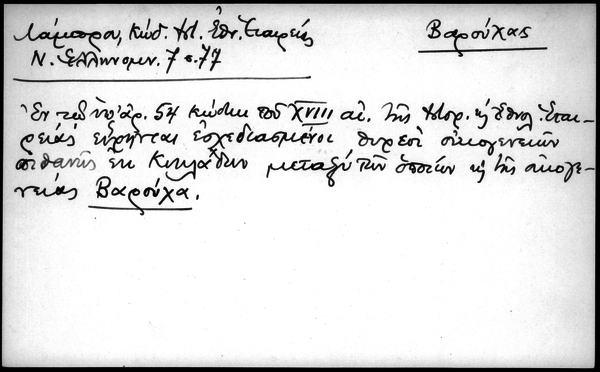 Λάμπρου, Κώδ. Ἱστ. Ἐθν. Ἑταιρείας
Βαρούχας
Ν. Ἑλληνομν. 7 σ. 77
Ἐν τῷ ὑπ' ἀρ. 54 κώδικι τοῦ XVIII αἰ. τῆς Ἱστορ. κ Ἐθνολ. Ἑται-
ρείας εὕρηνται ἐσχεδιασμένοι θυρεοὶ οἰκογενειῶν
πιθανῶς ἐκ Κυκλάδων μεταξὺ τῶν ὁποίων κ τῆς οἰκογε-
νείας Βαρούχα.